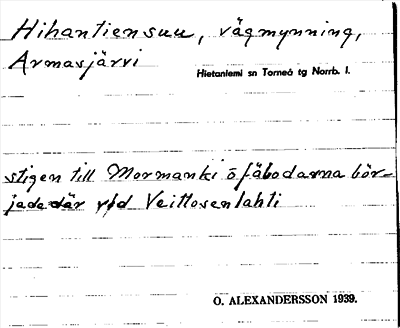 Hihantiensuu, vägmynning,
Armasjärvi
Hietaniemi sn Torneå tg Norrb. l.
stigen till Mormanki ö fäbodarna bör-
jade där vid Veittosenlahti
O. ALEXANDERSSON 1939.